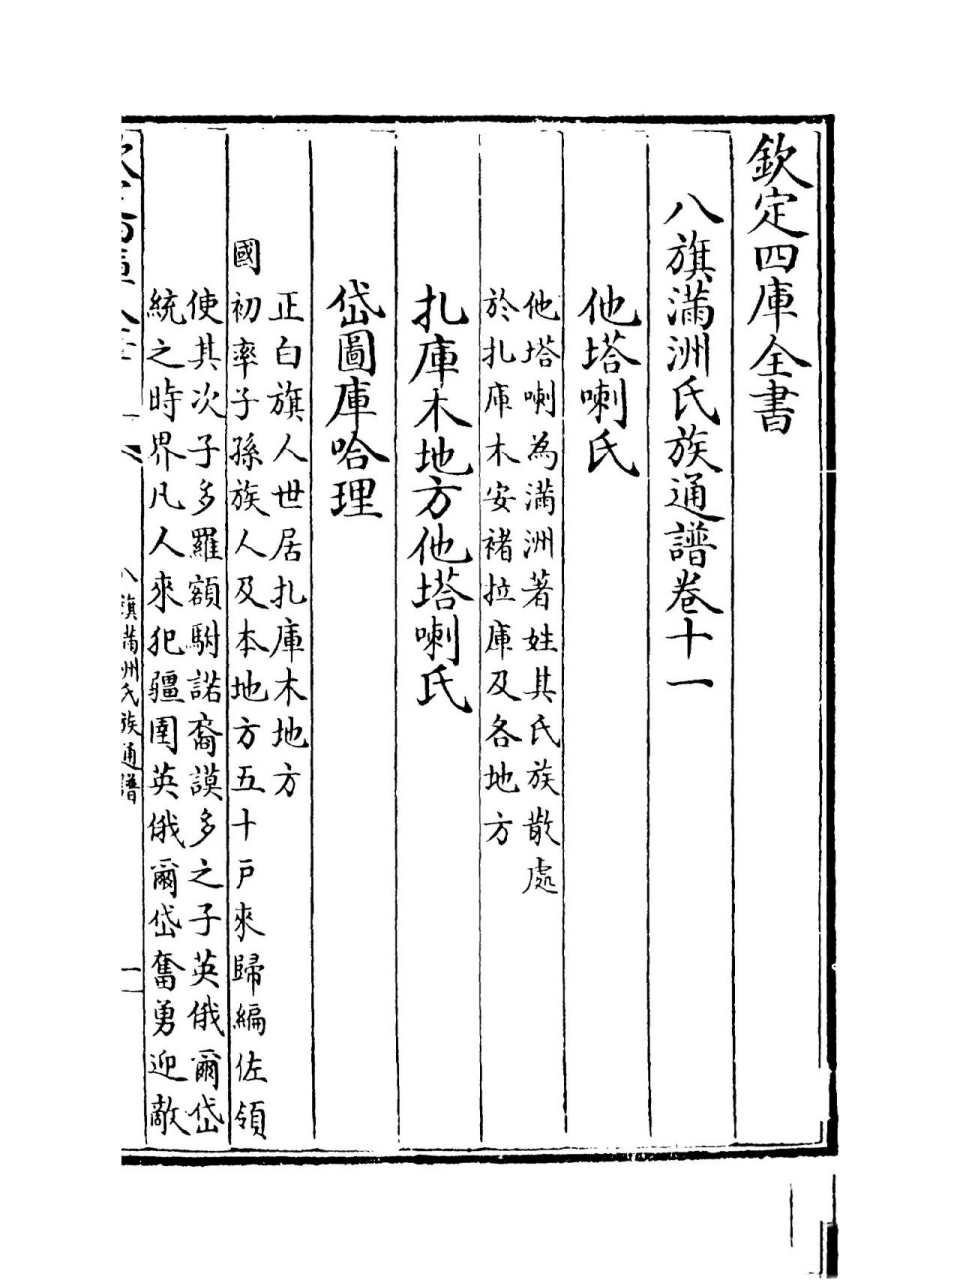 欽定四庫全書
八旗滿洲氏族通譜卷十一
他塔喇氏
他塔喇為滿洲著姓其氏族散處
於扎庫木安褚拉庫及各地方
扎庫木地方他塔喇氏
岱圖庫哈理
正白旗人世居扎庫木地方
國初率子孫族人及本地方五十戶來歸編佐領
使其次子多羅額駙諾裔謨多之子英俄爾岱
統之時界凡人來犯疆圉英俄爾岱奮勇迎敵
八旗滿洲氏族通譜
一